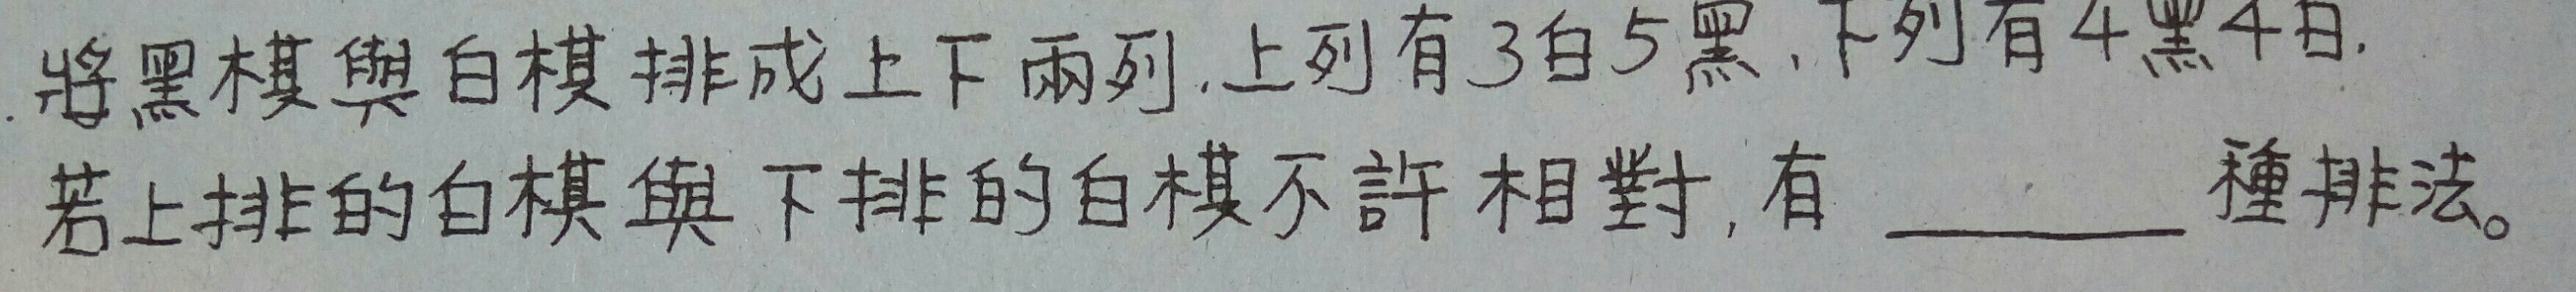 將黑棋與白棋排成上下兩列.上列有3白5黑,下列有4黑4白.
若上排的白棋與下排的白棋不許相對,有______種排法。